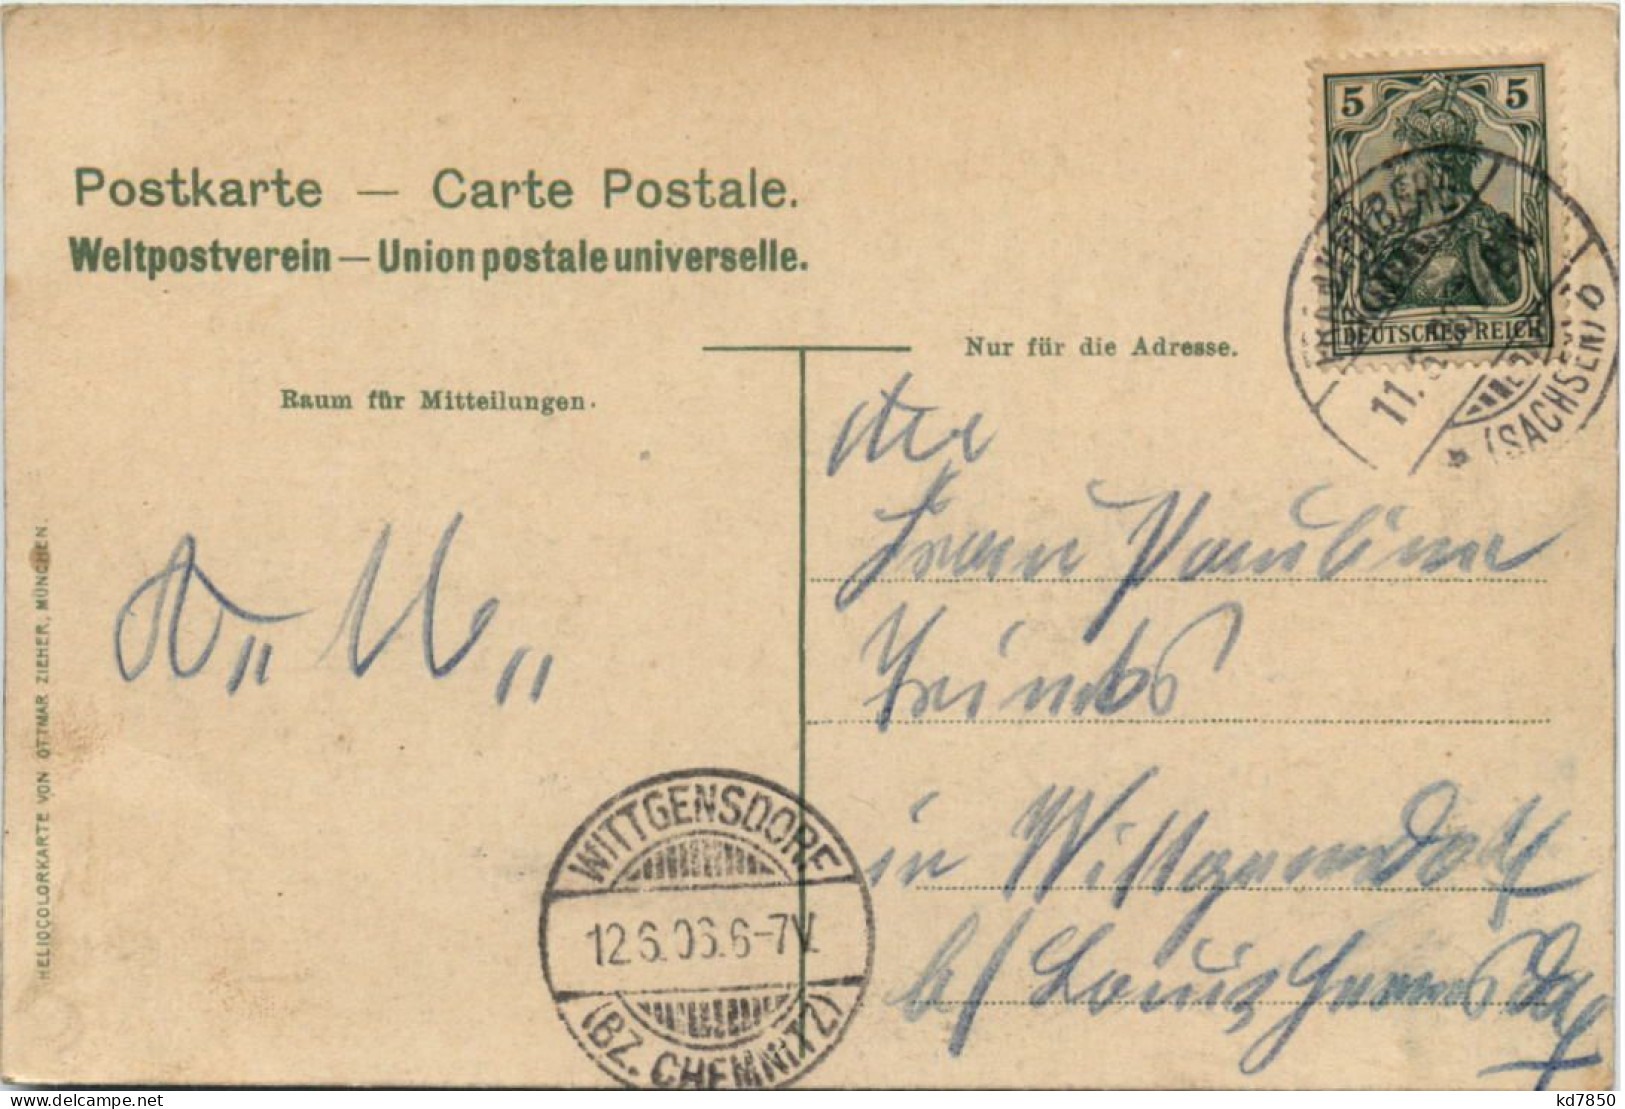 5 5
DEUTSCHES REICH
FRANKENBERG
11.6.
(SACHSEN) b
Postkarte — Carte Postale.
Weltpostverein — Union postale universelle.
Nur für die Adresse.
Raum für Mitteilungen.
Frau Pauline
in Wittgensdorf
b/
HELIOCOLORKARTE VON OTTMAR ZIEHER, MÜNCHEN.
WITTGENSDORF
12.6.06.6-7V.
(BZ. CHEMNITZ)
kd7850